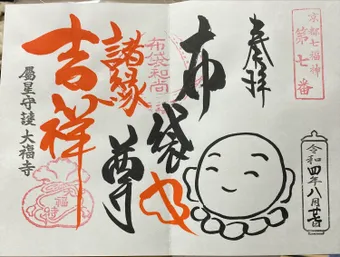 京都七福神
第七番
奉拝
布袋尊
布袋和尚
諸縁
吉祥
屬星守護 大福寺
大福寺
令和四年八月廿一日